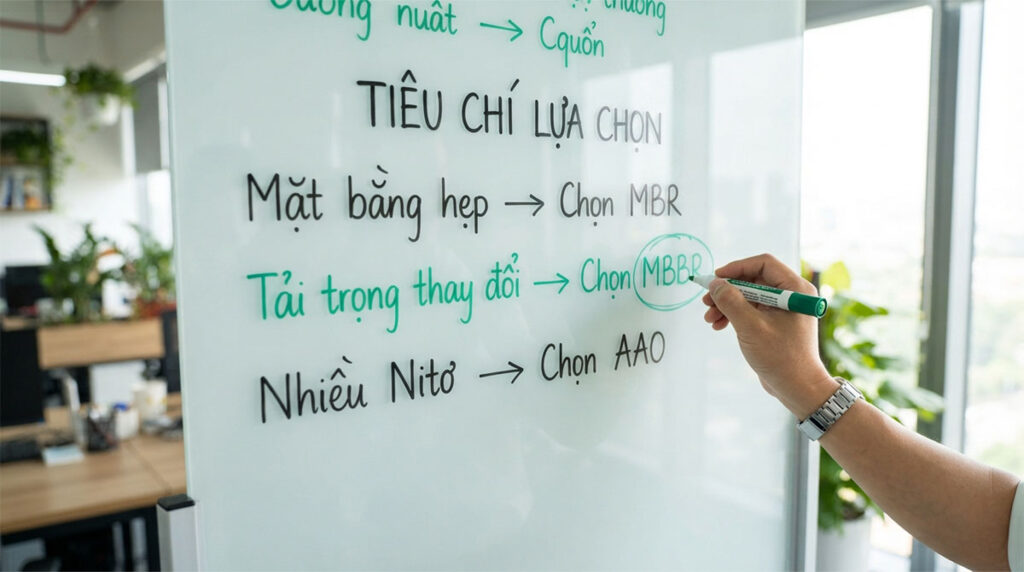 nuất → Cquốn
TIÊU CHÍ LỰA CHỌN
Mặt bằng hẹp → Chọn MBR
Tải trọng thay đổi → Chọn MBBR
Nhiều Nitơ → Chọn AAO